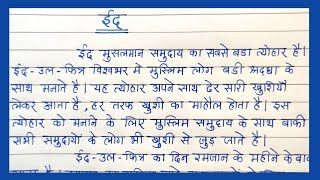 ईद
ईद मुसलमान समुदाय का सबसे बडा त्योहार है।
ईद-उल-फित्र विश्वभर मे मुस्लिम लोग बडी श्रध्दा के
साथ मनाते है। यह त्योहार अपने साथ ढेर सारी खुशियाँ
लेकर आता है, हर तरफ खुशी का माहोल होता है। इस
त्योहार को मनाने के लिए मुस्लिम समुदाय के साथ बाकी
सभी समुदायो के लोग भी खुशी से जुड जाते है।
ईद-उल-फित्र का दिन रमजान के महीने के बाद